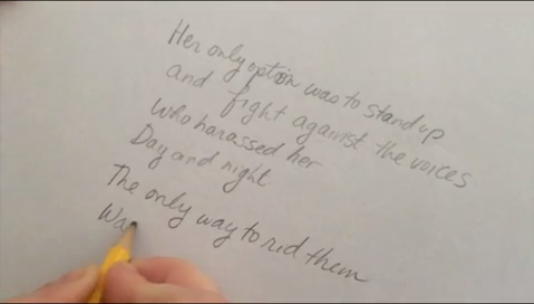 Her only option was to stand up
and fight against the voices
who harassed her
Day and night
The only way to rid them
Wa